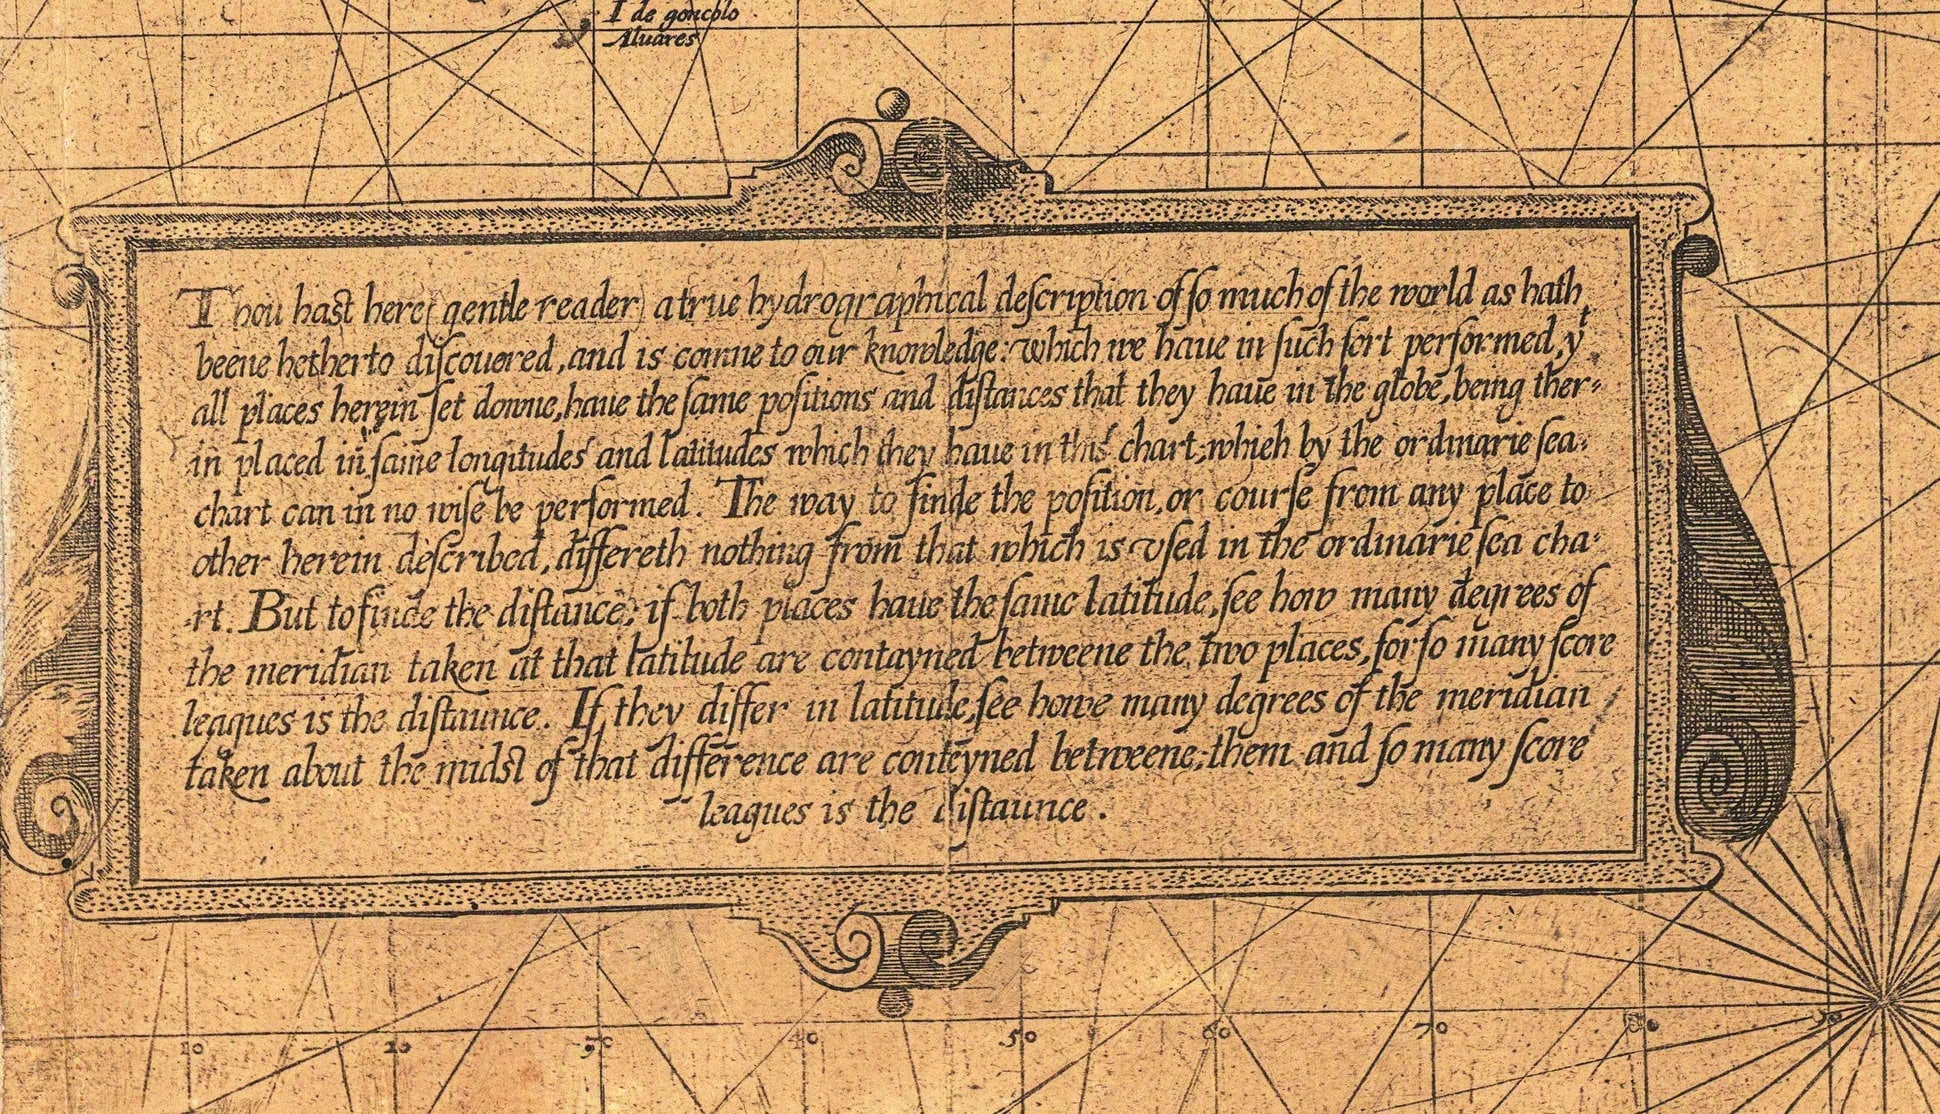 I de gonçolo
Aluares
Thou hast here (gentle reader) a true hydrographical deſcription of ſo much of the world as hath
beene hetherto diſcouered, and is comne to our knowledge: which we haue in ſuch ſort performed, yᵗ
all places herein ſet downe, haue the ſame poſitions and diſtances that they haue in the globe, being ther-
in placed in ſame longitudes and latitudes which they haue in this chart, which by the ordinarie ſea-
chart can in no wiſe be performed. The way to finde the poſition, or courſe from any place to
other herein deſcribed, differeth nothing from that which is vſed in the ordinarie ſea cha-
rt. But to finde the diſtance; if both places haue the ſame latitude, ſee how many degrees of
the meridian taken at that latitude are contayned betweene the two places, for ſo many ſcore
leagues is the diſtaunce. If they differ in latitude, ſee howe many degrees of the meridian
taken about the midſt of that difference are conteyned betweene them and ſo many ſcore
leagues is the diſtaunce.
10 20 30 40 50 60 70 80 90